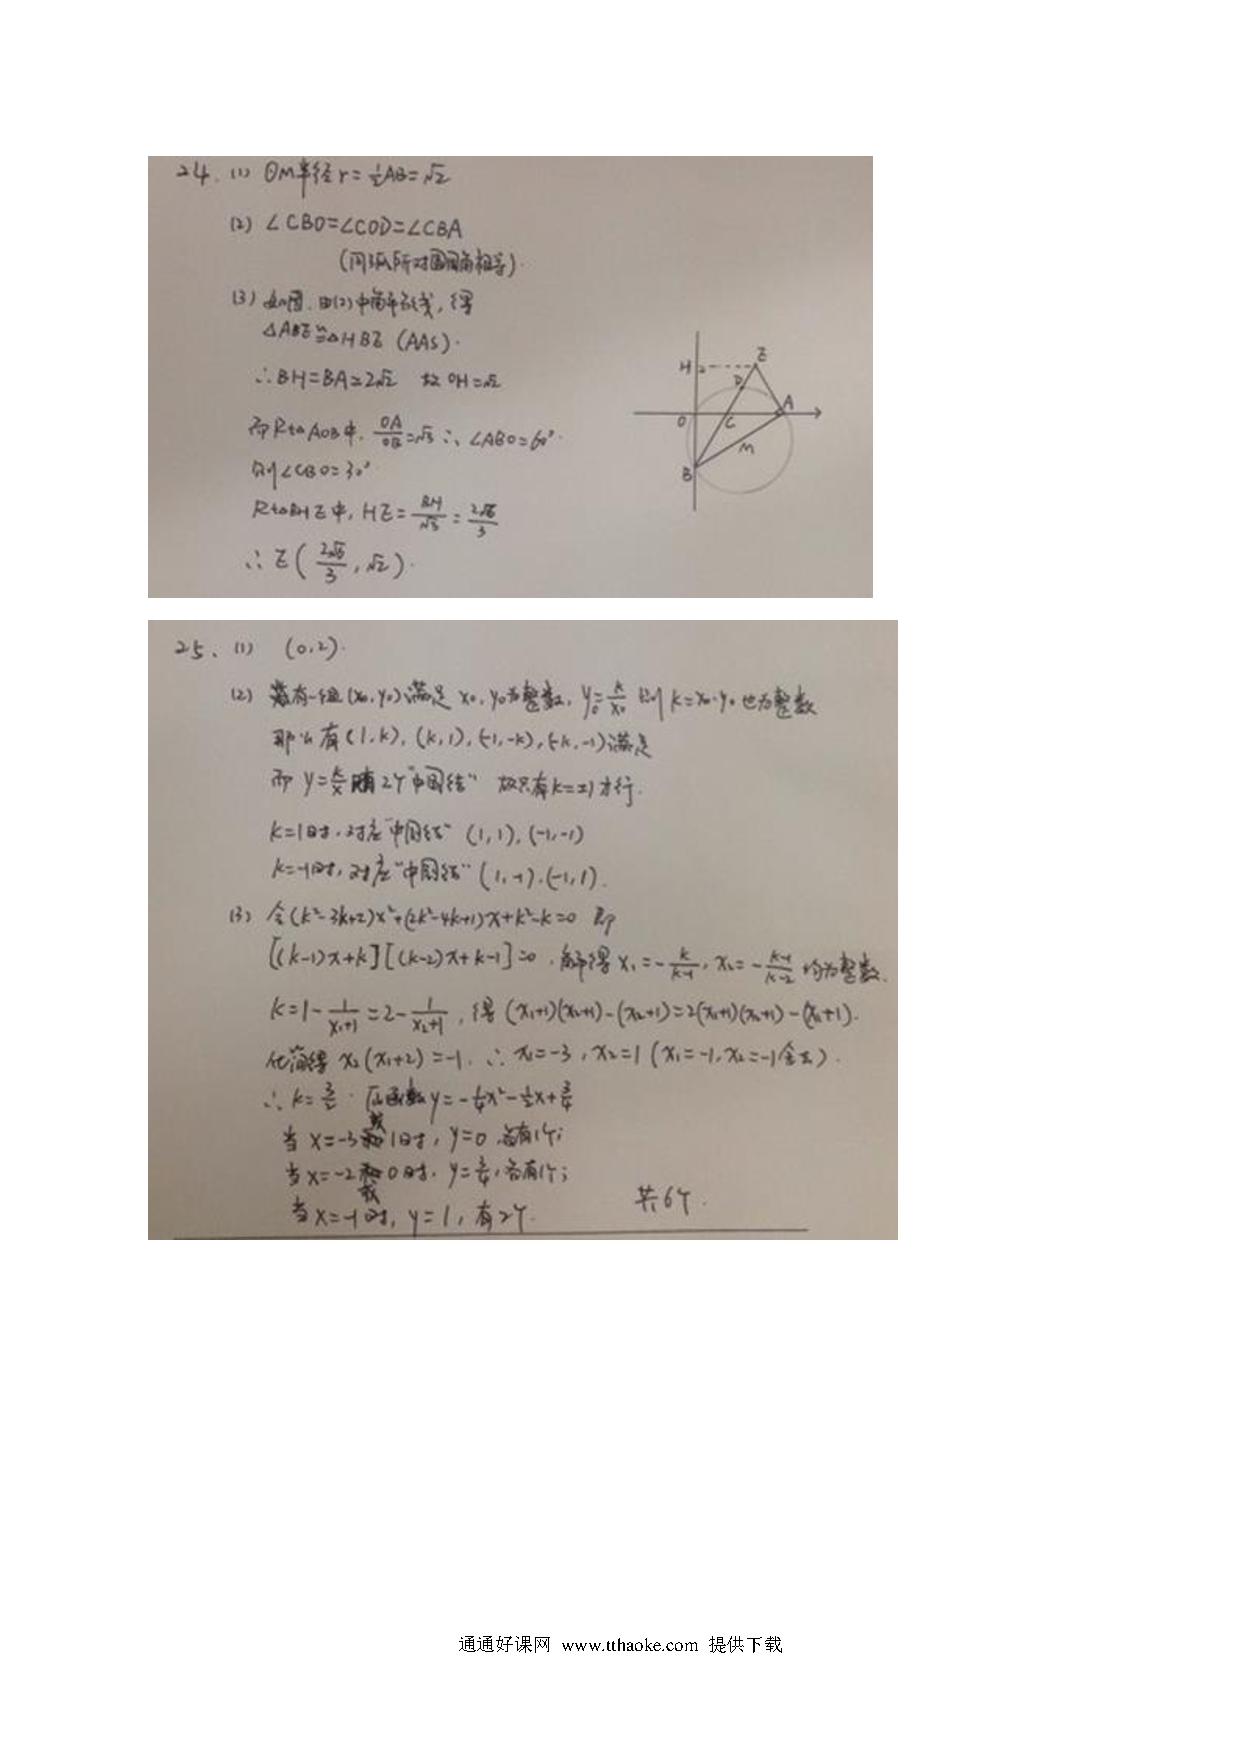 24. (1) ⊙M半径r=½AB=√2
(2) ∠CBO=∠COD=∠CBA
(同弧所对圆周角相等).
(3) 如图.由(2)中角平分线,得
△ABE≌△HBE (AAS).
∴BH=BA=2√2 故OH=√2
而Rt△AOB中, OA/OB=√3 ∴∠ABO=60°.
则∠CBO=30°
Rt△BHE中, HE=BH/√3=2√6/3
∴E(2√6/3,√2).
H
E
D
O
C
A
M
B
25、(1) (0,2).
(2) 若有一组(x₀,y₀)满足x₀,y₀为整数, y₀=k/x₀ 则k=x₀·y₀也为整数
那么有(1,k), (k,1), (-1,-k), (-k,-1)满足
而y=k/x 2个"中国结" 故只有k=±1才行.
k=1时,对应"中国结" (1,1), (-1,-1)
k=-1时,对应"中国结" (1,-1), (-1,1).
(3) 令(k²-3k+2)x²+(2k²-4k+1)x+k²-k=0 即
[(k-1)x+k][(k-2)x+k-1]=0 ,解得x₁=-k/(k-1), x₂=-(k-1)/(k-2) 均为整数.
k=1-1/(x₁+1)=2-1/(x₂+1), 得(x₁+1)(x₂+1)-(x₂+1)=2(x₁+1)(x₂+1)-(x₁+1).
化简得 x₂(x₁+2)=-1. ∴x₁=-3, x₂=1 (x₁=-1,x₂=-1舍去).
∴k=3/2. 函数y=-¼x²-½x+¾
当x=-3或1时, y=0,各有1个;
当x=-2或0时, y=¾,各有1个;
当x=-1时, y=1, 有2个. 共6个.
通通好课网 www.tthaoke.com 提供下载